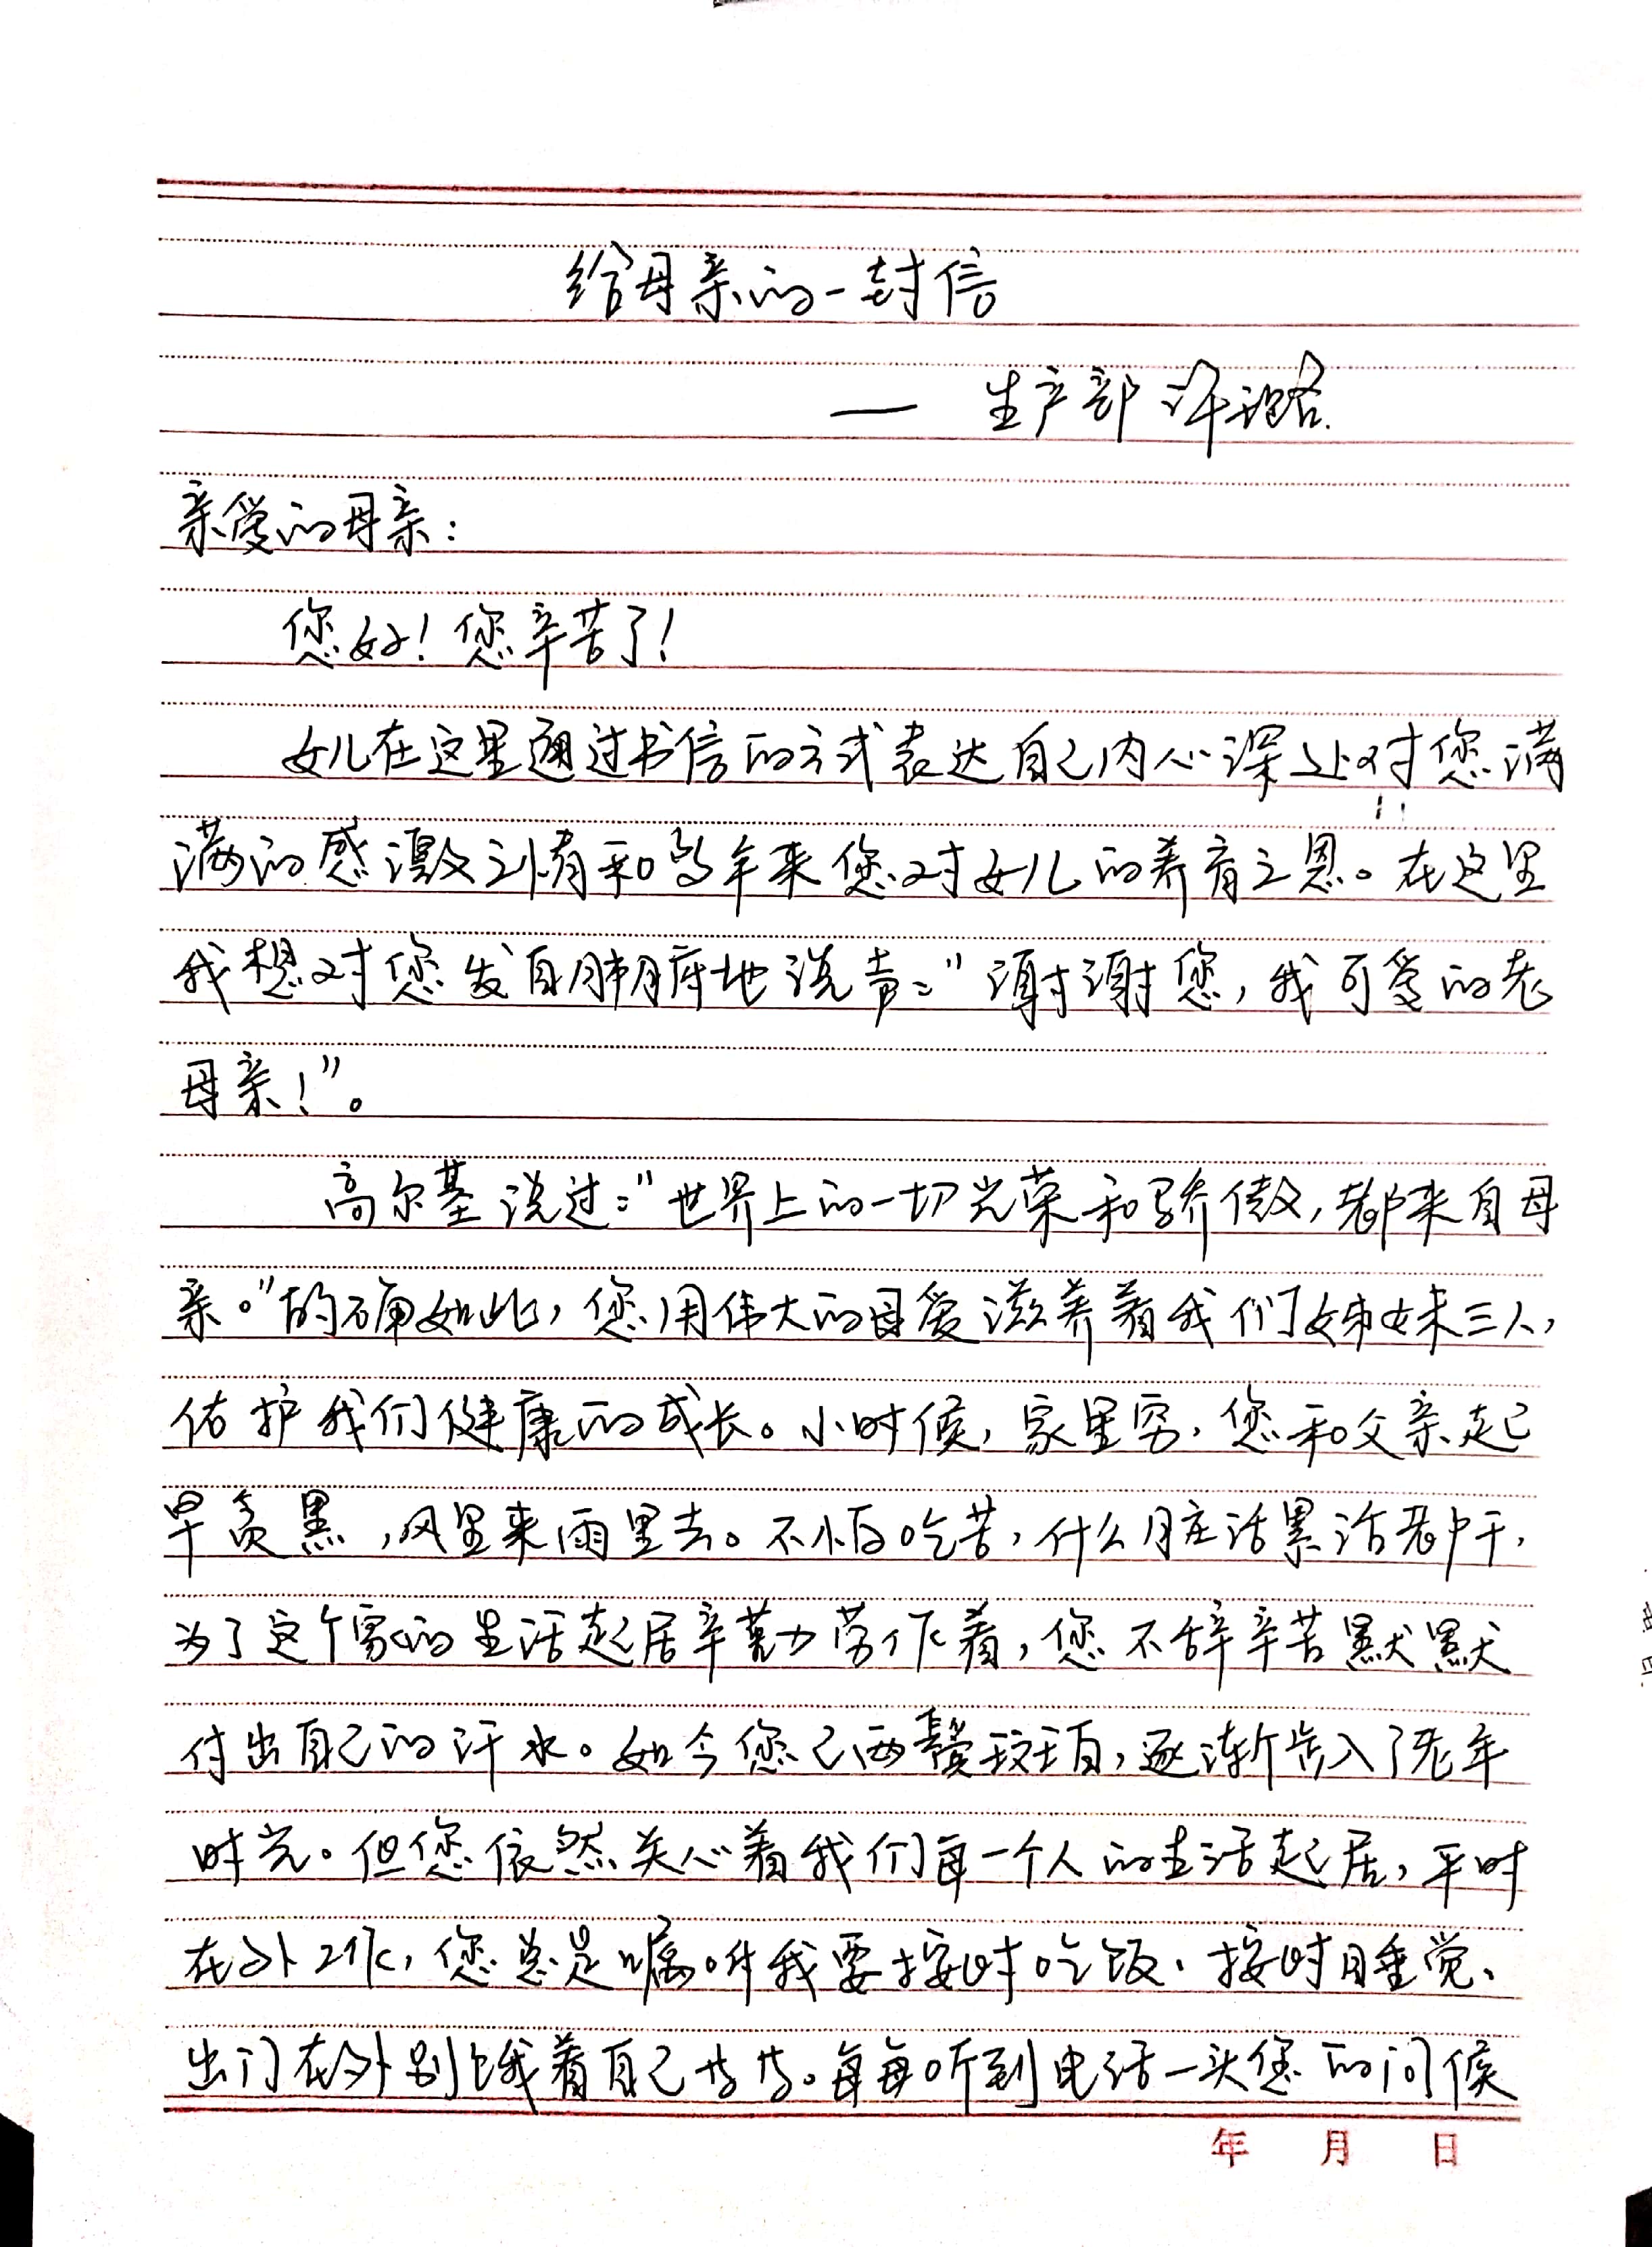 给母亲的一封信
—— 生产部 许
亲爱的母亲：
您好！您辛苦了！
女儿在这里通过书信的方式表达自己内心深处对您满
满的感激之情和多年来您对女儿的养育之恩。在这里
我想对您发自肺腑地说声："谢谢您，我可爱的老
母亲！"。
高尔基说过："世界上的一切光荣和骄傲，都来自母
亲。"的确如此，您用伟大的母爱滋养着我们姊妹三人，
佑护我们健康的成长。小时候，家里穷，您和父亲起
早贪黑，风里来雨里去。不怕吃苦，什么脏活累活都干，
为了这个家的生活起居辛勤劳作着，您不辞辛苦默默
付出自己的汗水。如今您已两鬓斑白，逐渐步入了老年
时光。但您依然关心着我们每一个人的生活起居，平时
在外工作，您总是嘱咐我要按时吃饭、按时睡觉、
出门在外别饿着自己等等。每每听到电话一头您的问候
年 月 日